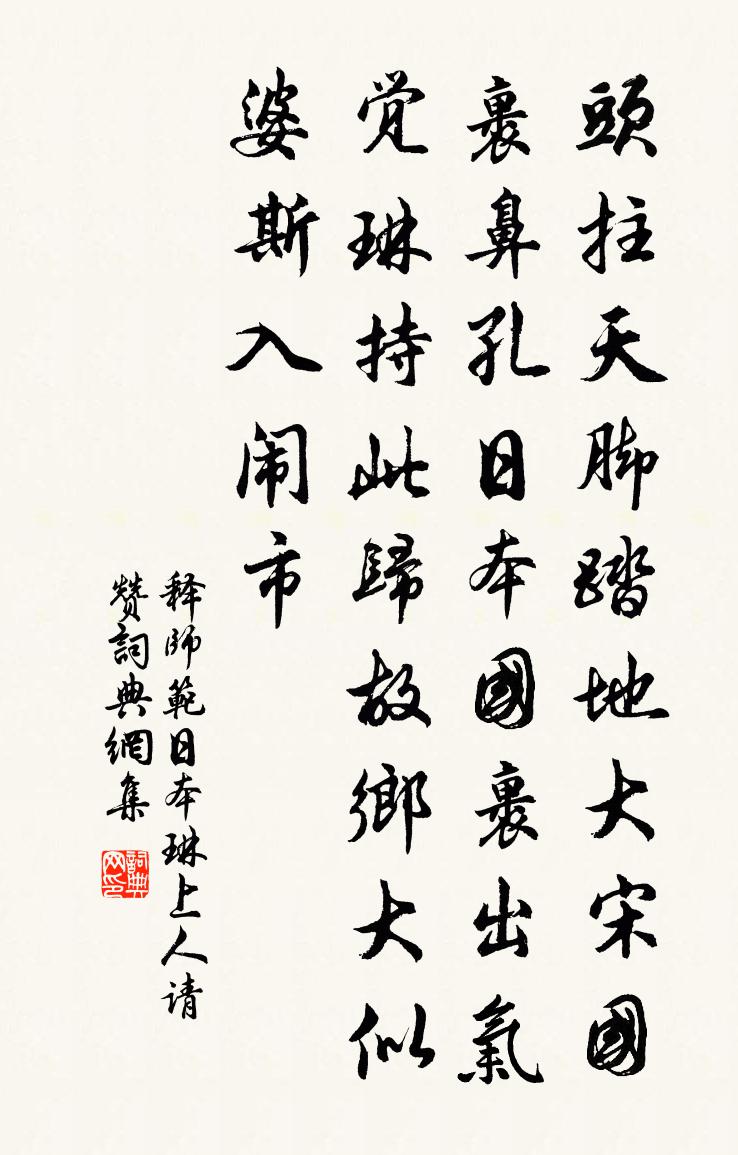 頭拄天脚踏地大宋國
裹鼻孔日本國裹出氣
覚琳持此歸故鄉大似
婆斯入闹市
释師範日本琳上人请
赞詞典網集
詞典网印